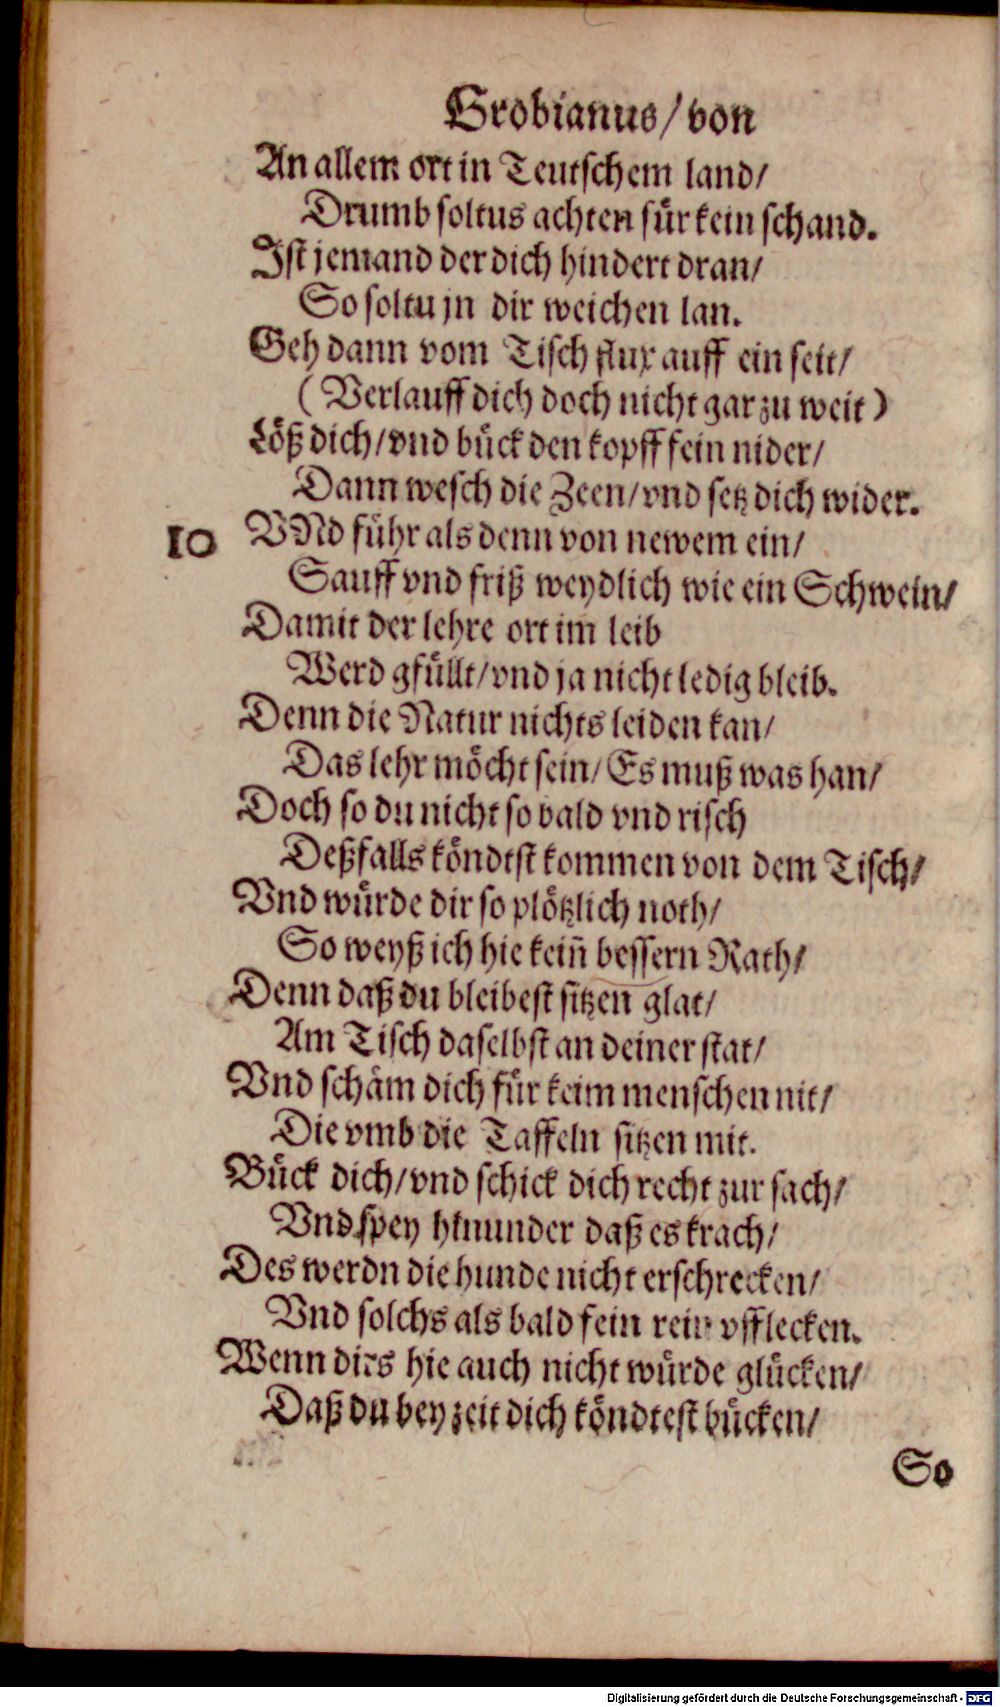 Grobianus/ von
An allem ort in Teutschem land/
Drumb soltus achten für kein schand.
Ist jemand der dich hindert dran/
So soltu jn dir weichen lan.
Geh dann vom Tisch flux auff ein seit/
(Verlauff dich doch nicht gar zu weit)
Löß dich/ vnd bück den kopff fein nider/
Dann wesch die Zeen/ vnd setz dich wider.
10 VNd führ als denn von newem ein/
Sauff vnd friß weydlich wie ein Schwein/
Damit der lehre ort im leib
Werd gfüllt/ vnd ja nicht ledig bleib.
Denn die Natur nichts leiden kan/
Das lehr möcht sein/ Es muß was han/
Doch so du nicht so bald vnd risch
Deßfalls köndtst kommen von dem Tisch/
Vnd würde dir so plötzlich noth/
So weyß ich hie kein̄ bessern Rath/
Denn daß du bleibest sitzen glat/
Am Tisch daselbst an deiner stat/
Vnd schäm dich für keim menschen nit/
Die vmb die Taffeln sitzen mit.
Bück dich/ vnd schick dich recht zur sach/
Vnd spey hinunder daß es krach/
Des werdn die hunde nicht erschrecken/
Vnd solchs als bald fein rein vfflecken.
Wenn dirs hie auch nicht würde glücken/
Daß du bey zeit dich köndtest bücken/
So
Digitalisierung gefördert durch die Deutsche Forschungsgemeinschaft - DFG